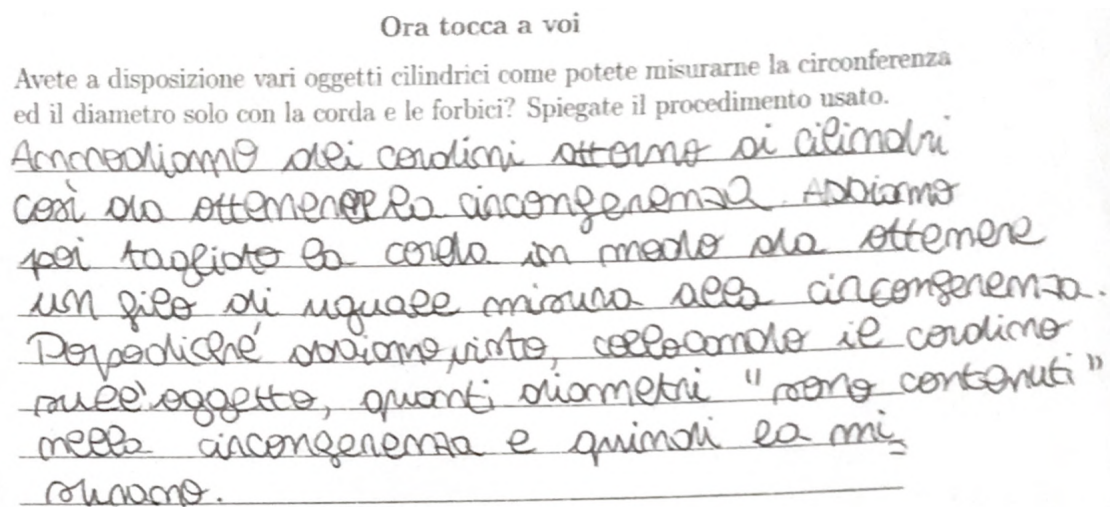 Ora tocca a voi
Avete a disposizione vari oggetti cilindrici come potete misurarne la circonferenza
ed il diametro solo con la corda e le forbici? Spiegate il procedimento usato.
Arrotoliamo dei cordicini attorno ai cilindri
così da ottenere la circonferenza. Abbiamo
poi tagliato la corda in modo da ottenere
un filo di uguale misura alla circonferenza.
Dopodiché abbiamo visto, collocando il cordicino
sull'oggetto, quanti diametri "sono contenuti"
nella circonferenza e quindi la mi
surano.